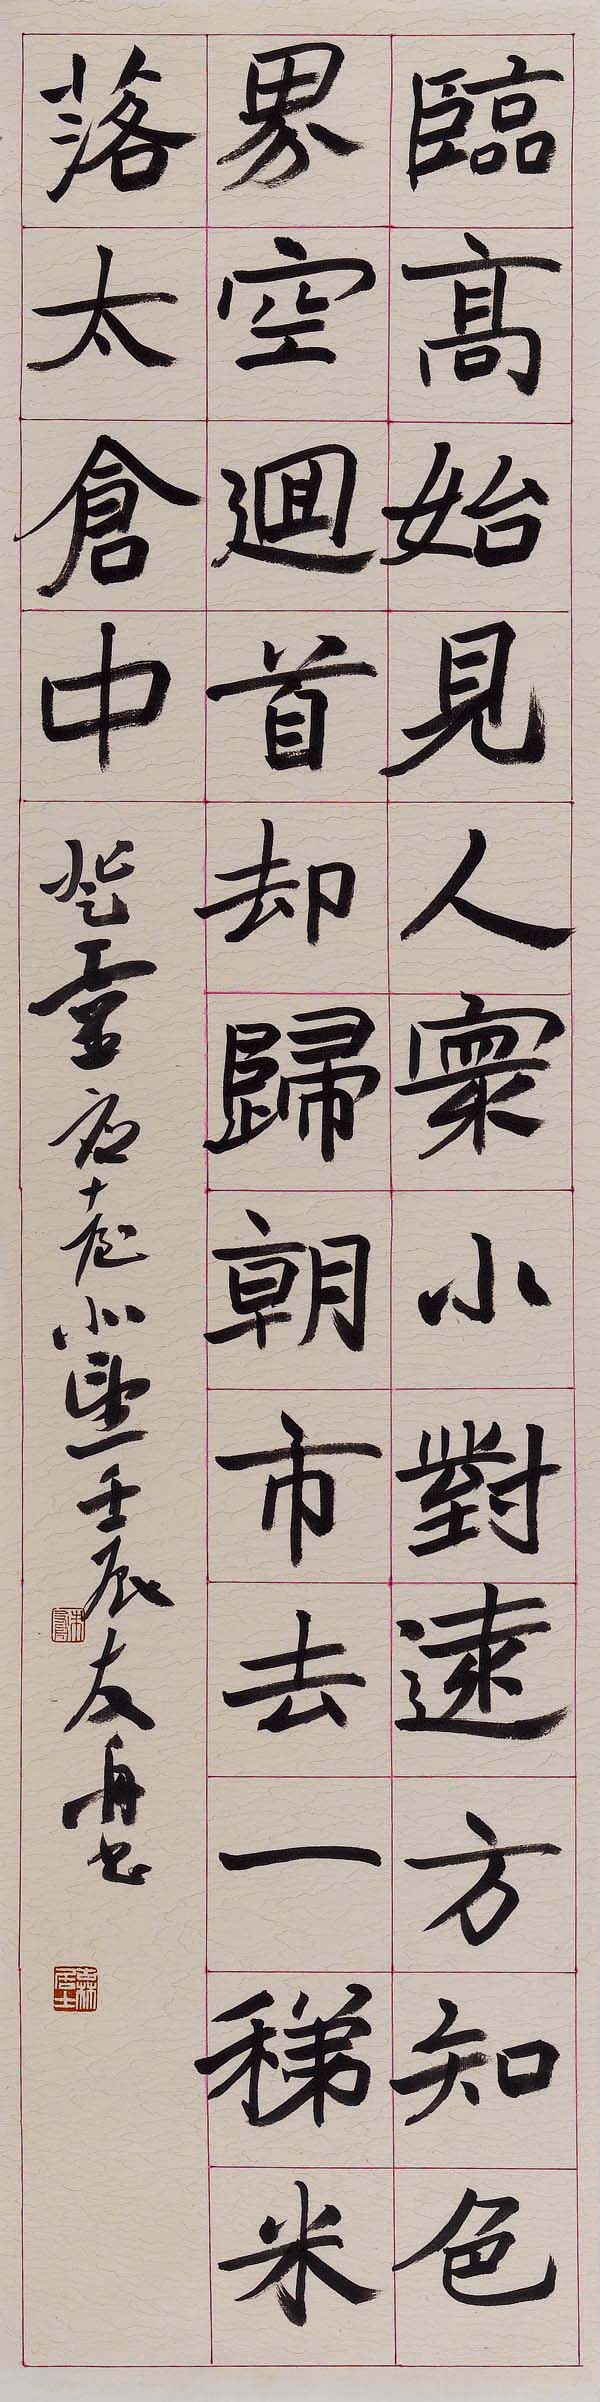 臨高始見人寰小對遠方知色
界空迴首却歸朝市去一稊米
落太倉中 登靈應臺北望壬辰友舟書